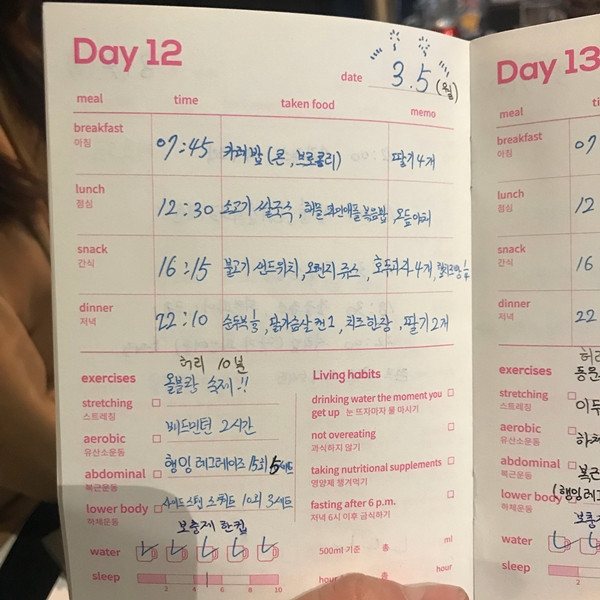 Day 12
date 3.5 (월)
meal time taken food memo
breakfast 07:45 카레밥 (콘, 브로콜리) 딸기 4개
아침
lunch 12:30 소고기 쌀국수, 해물 파인애플 볶음밥,
점심
snack 16:15 불고기 샌드위치, 오렌지 쥬스, 호두과자 4개,
간식
dinner 22:10 순두부 ½, 닭가슴살 캔 1, 치즈 한장, 딸기 2개
저녁
허리 10분
exercises 올블랑 숙제!!
stretching
스트레칭
aerobic 배드민턴 2시간
유산소운동
abdominal 행잉 레그레이즈 15회 5세트
복근운동
lower body 스쿼트 10회 3세트
하체운동
보충제 한컵
water
sleep
2 4 6 8 10
Living habits
drinking water the moment you
get up 눈 뜨자마자 물 마시기
not overeating
과식하지 않기
taking nutritional supplements
영양제 챙겨먹기
fasting after 6 p.m.
저녁 6시 이후 금식하기
500ml 기준 총 ml
hour
Day 13
meal
breakfast 07
아침
lunch 12
점심
snack 16
간식
dinner 22
저녁
허리
exercises
stretching
스트레칭
aerobic
유산소운동
abdominal
복근운동
(행잉레그
lower body
하체운동
water
sleep
2